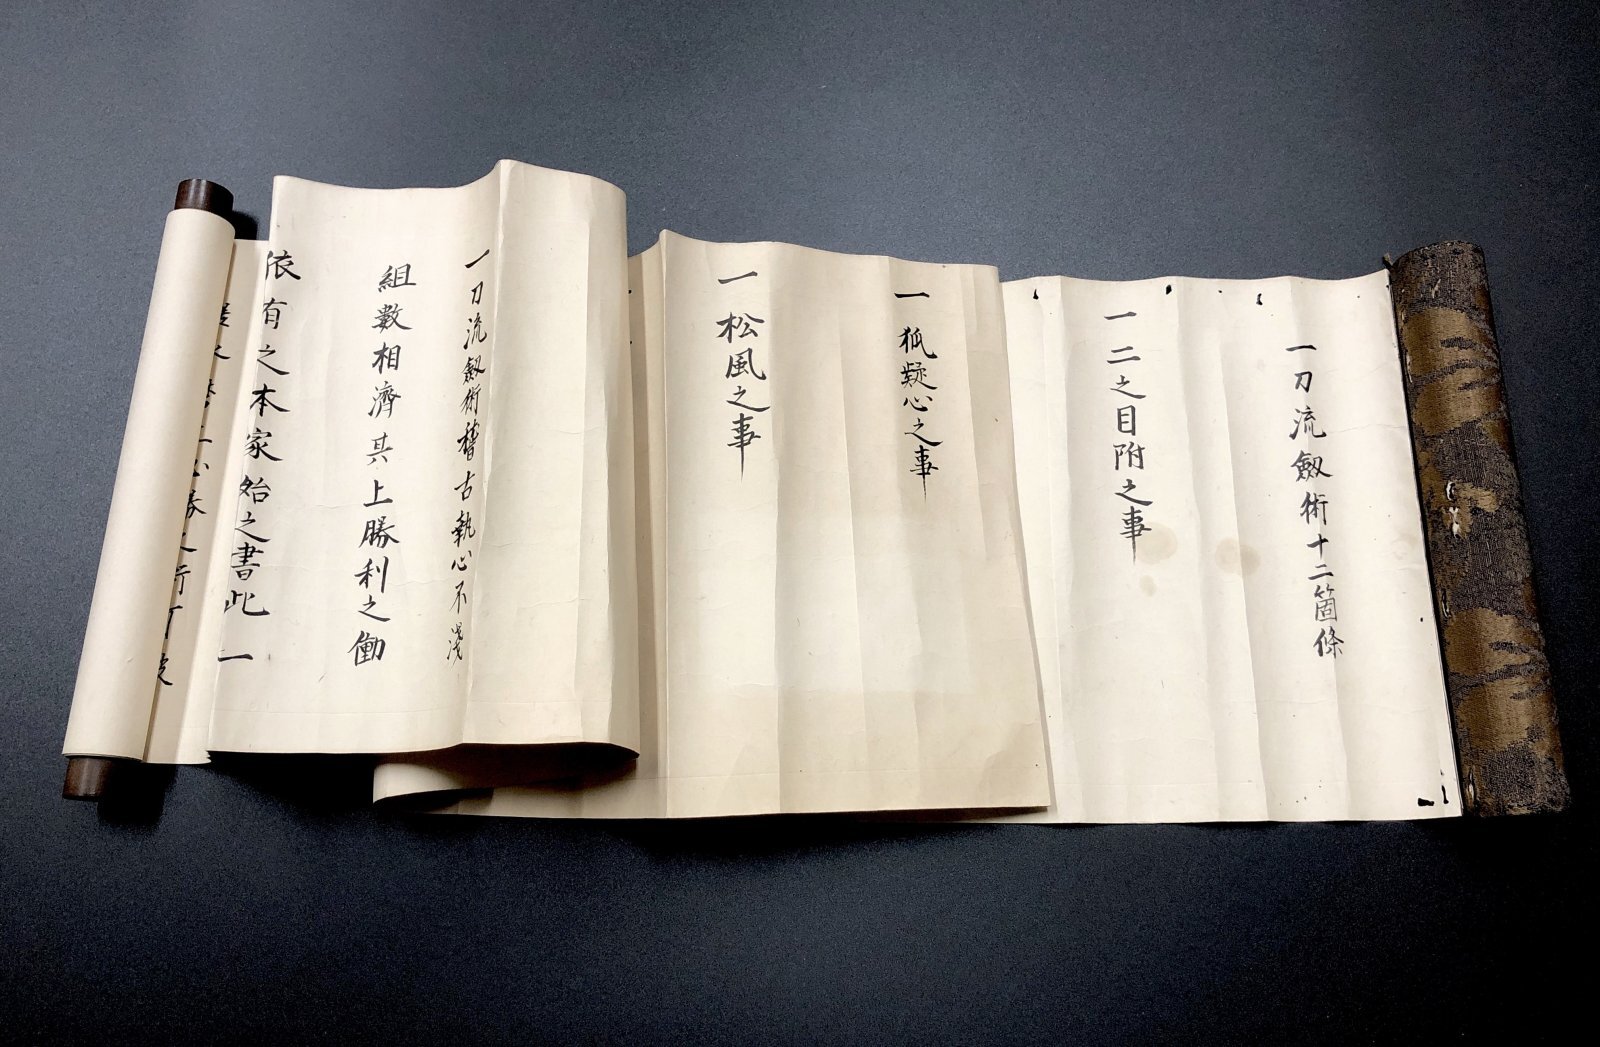 一刀流劔術十二箇條
一二之目附之事
一狐疑心之事
一松風之事
一刀流劔術稽古執心不淺
組數相濟其上勝利之働
依有之本家始之書此一
必勝之